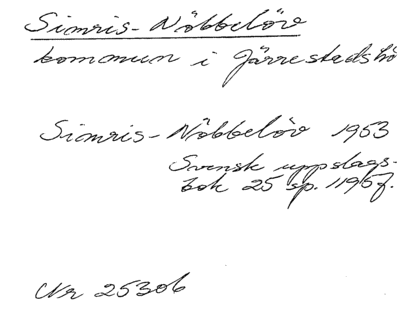 Simris-Nöbbelöv
kommun i Järrestads hd
Simris-Nöbbelöv 1953
Svensk uppslags-
bok 25 sp. 1195 f.
Nr 25306